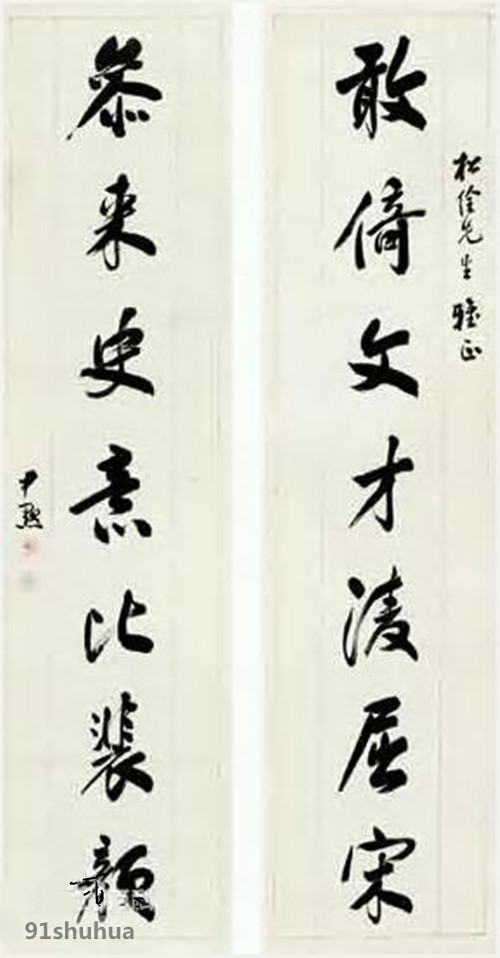 松先生雅正
敢倚文才淩屈宋
叅来史意比裴顔
尹默
91shuhua